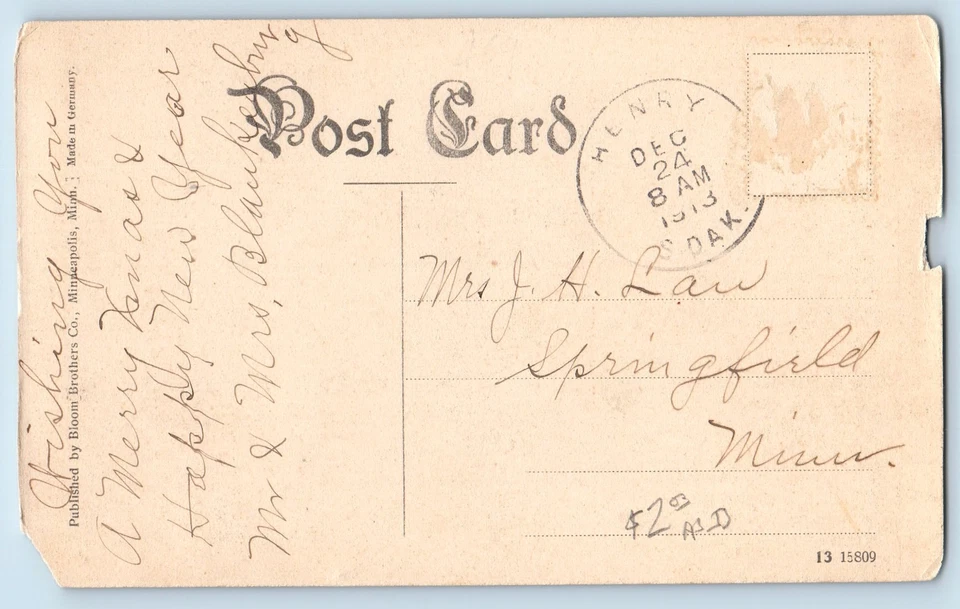 Post Card
HENRY
DEC
24
8 AM
1913
S.DAK.
Published by Bloom Brothers Co., Minneapolis, Minn. Made in Germany.
Wishing You
A Merry Xmas &
Happy New Year
Mr & Mrs. Blankenburg
Mrs J. H. Law
Springfield
Minn.
$2.00
13 15809